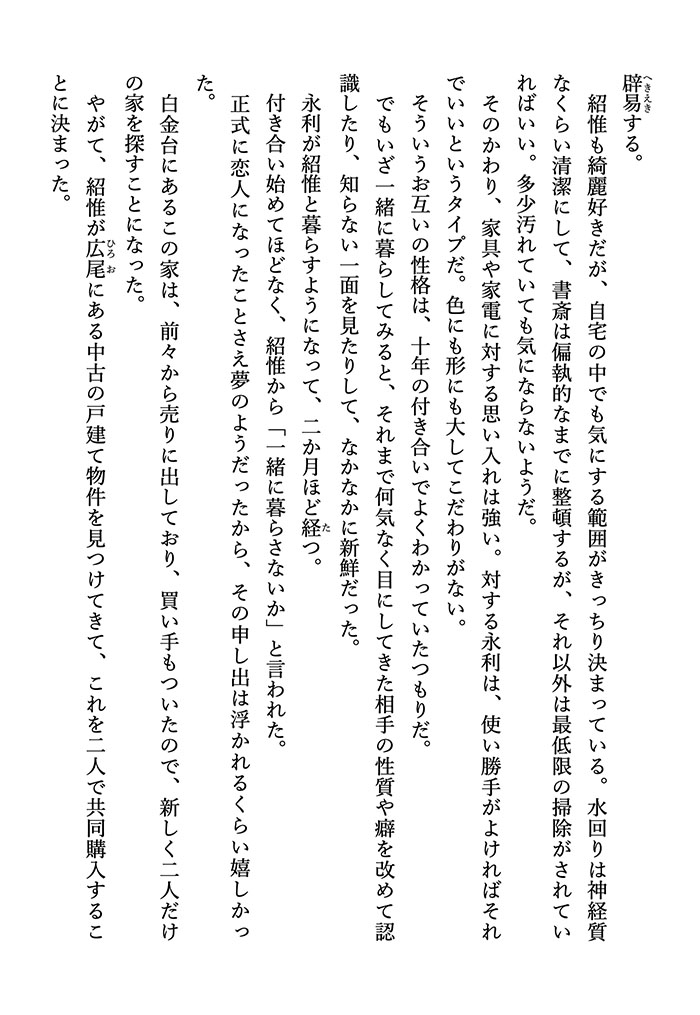 辟易する。
　紹惟も綺麗好きだが、自宅の中でも気にする範囲がきっちり決まっている。水回りは神経質
なくらい清潔にして、書斎は偏執的なまでに整頓するが、それ以外は最低限の掃除がされてい
ればいい。多少汚れていても気にならないようだ。
　そのかわり、家具や家電に対する思い入れは強い。対する永利は、使い勝手がよければそれ
でいいというタイプだ。色にも形にも大してこだわりがない。
　そういうお互いの性格は、十年の付き合いでよくわかっていたつもりだ。
　でもいざ一緒に暮らしてみると、それまで何気なく目にしてきた相手の性質や癖を改めて認
識したり、知らない一面を見たりして、なかなかに新鮮だった。
　永利が紹惟と暮らすようになって、二か月ほど経つ。
　付き合い始めてほどなく、紹惟から「一緒に暮らさないか」と言われた。
　正式に恋人になったことさえ夢のようだったから、その申し出は浮かれるくらい嬉しかっ
た。
　白金台にあるこの家は、前々から売りに出しており、買い手もついたので、新しく二人だけ
の家を探すことになった。
　やがて、紹惟が広尾にある中古の戸建て物件を見つけてきて、これを二人で共同購入するこ
とに決まった。